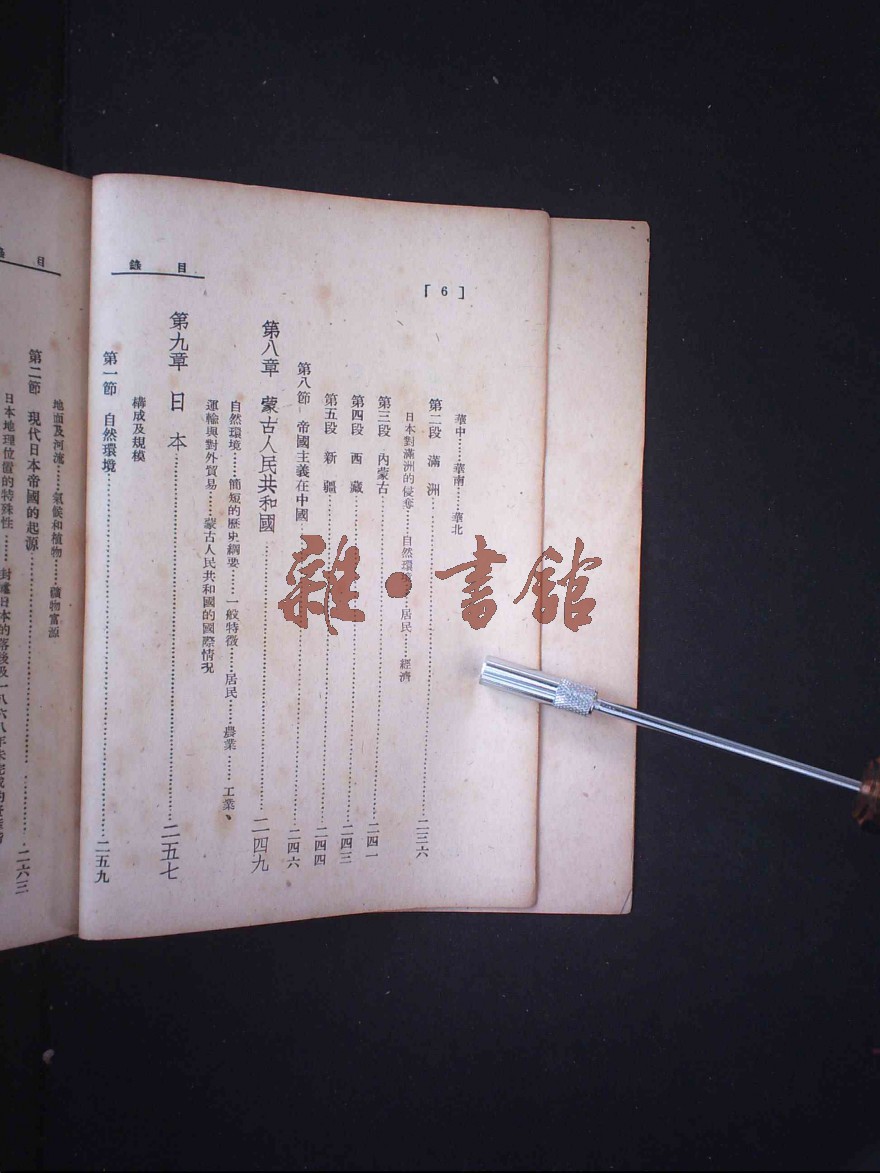 [ 6 ]
目錄
華中……華南……華北
第二段 滿洲……二三六
日本對滿洲的侵奪……自然環境……居民……經濟
第三段 內蒙古……二四一
第四段 西藏……二四三
第五段 新疆……二四四
第八節 帝國主義在中國……二四六
第八章 蒙古人民共和國……二四九
自然環境……簡短的歷史綱要……一般特徵……居民……農業……工業、
運輸與對外貿易……蒙古人民共和國的國際情况
第九章 日本……二五七
構成及規模
第一節 自然環境……二五九
目
地面及河流……氣候和植物……礦物富源
第二節 現代日本帝國的起源……二六三
日本地理位置的特殊性……封建日本的落後及一八六八年未完成的
雜·書館